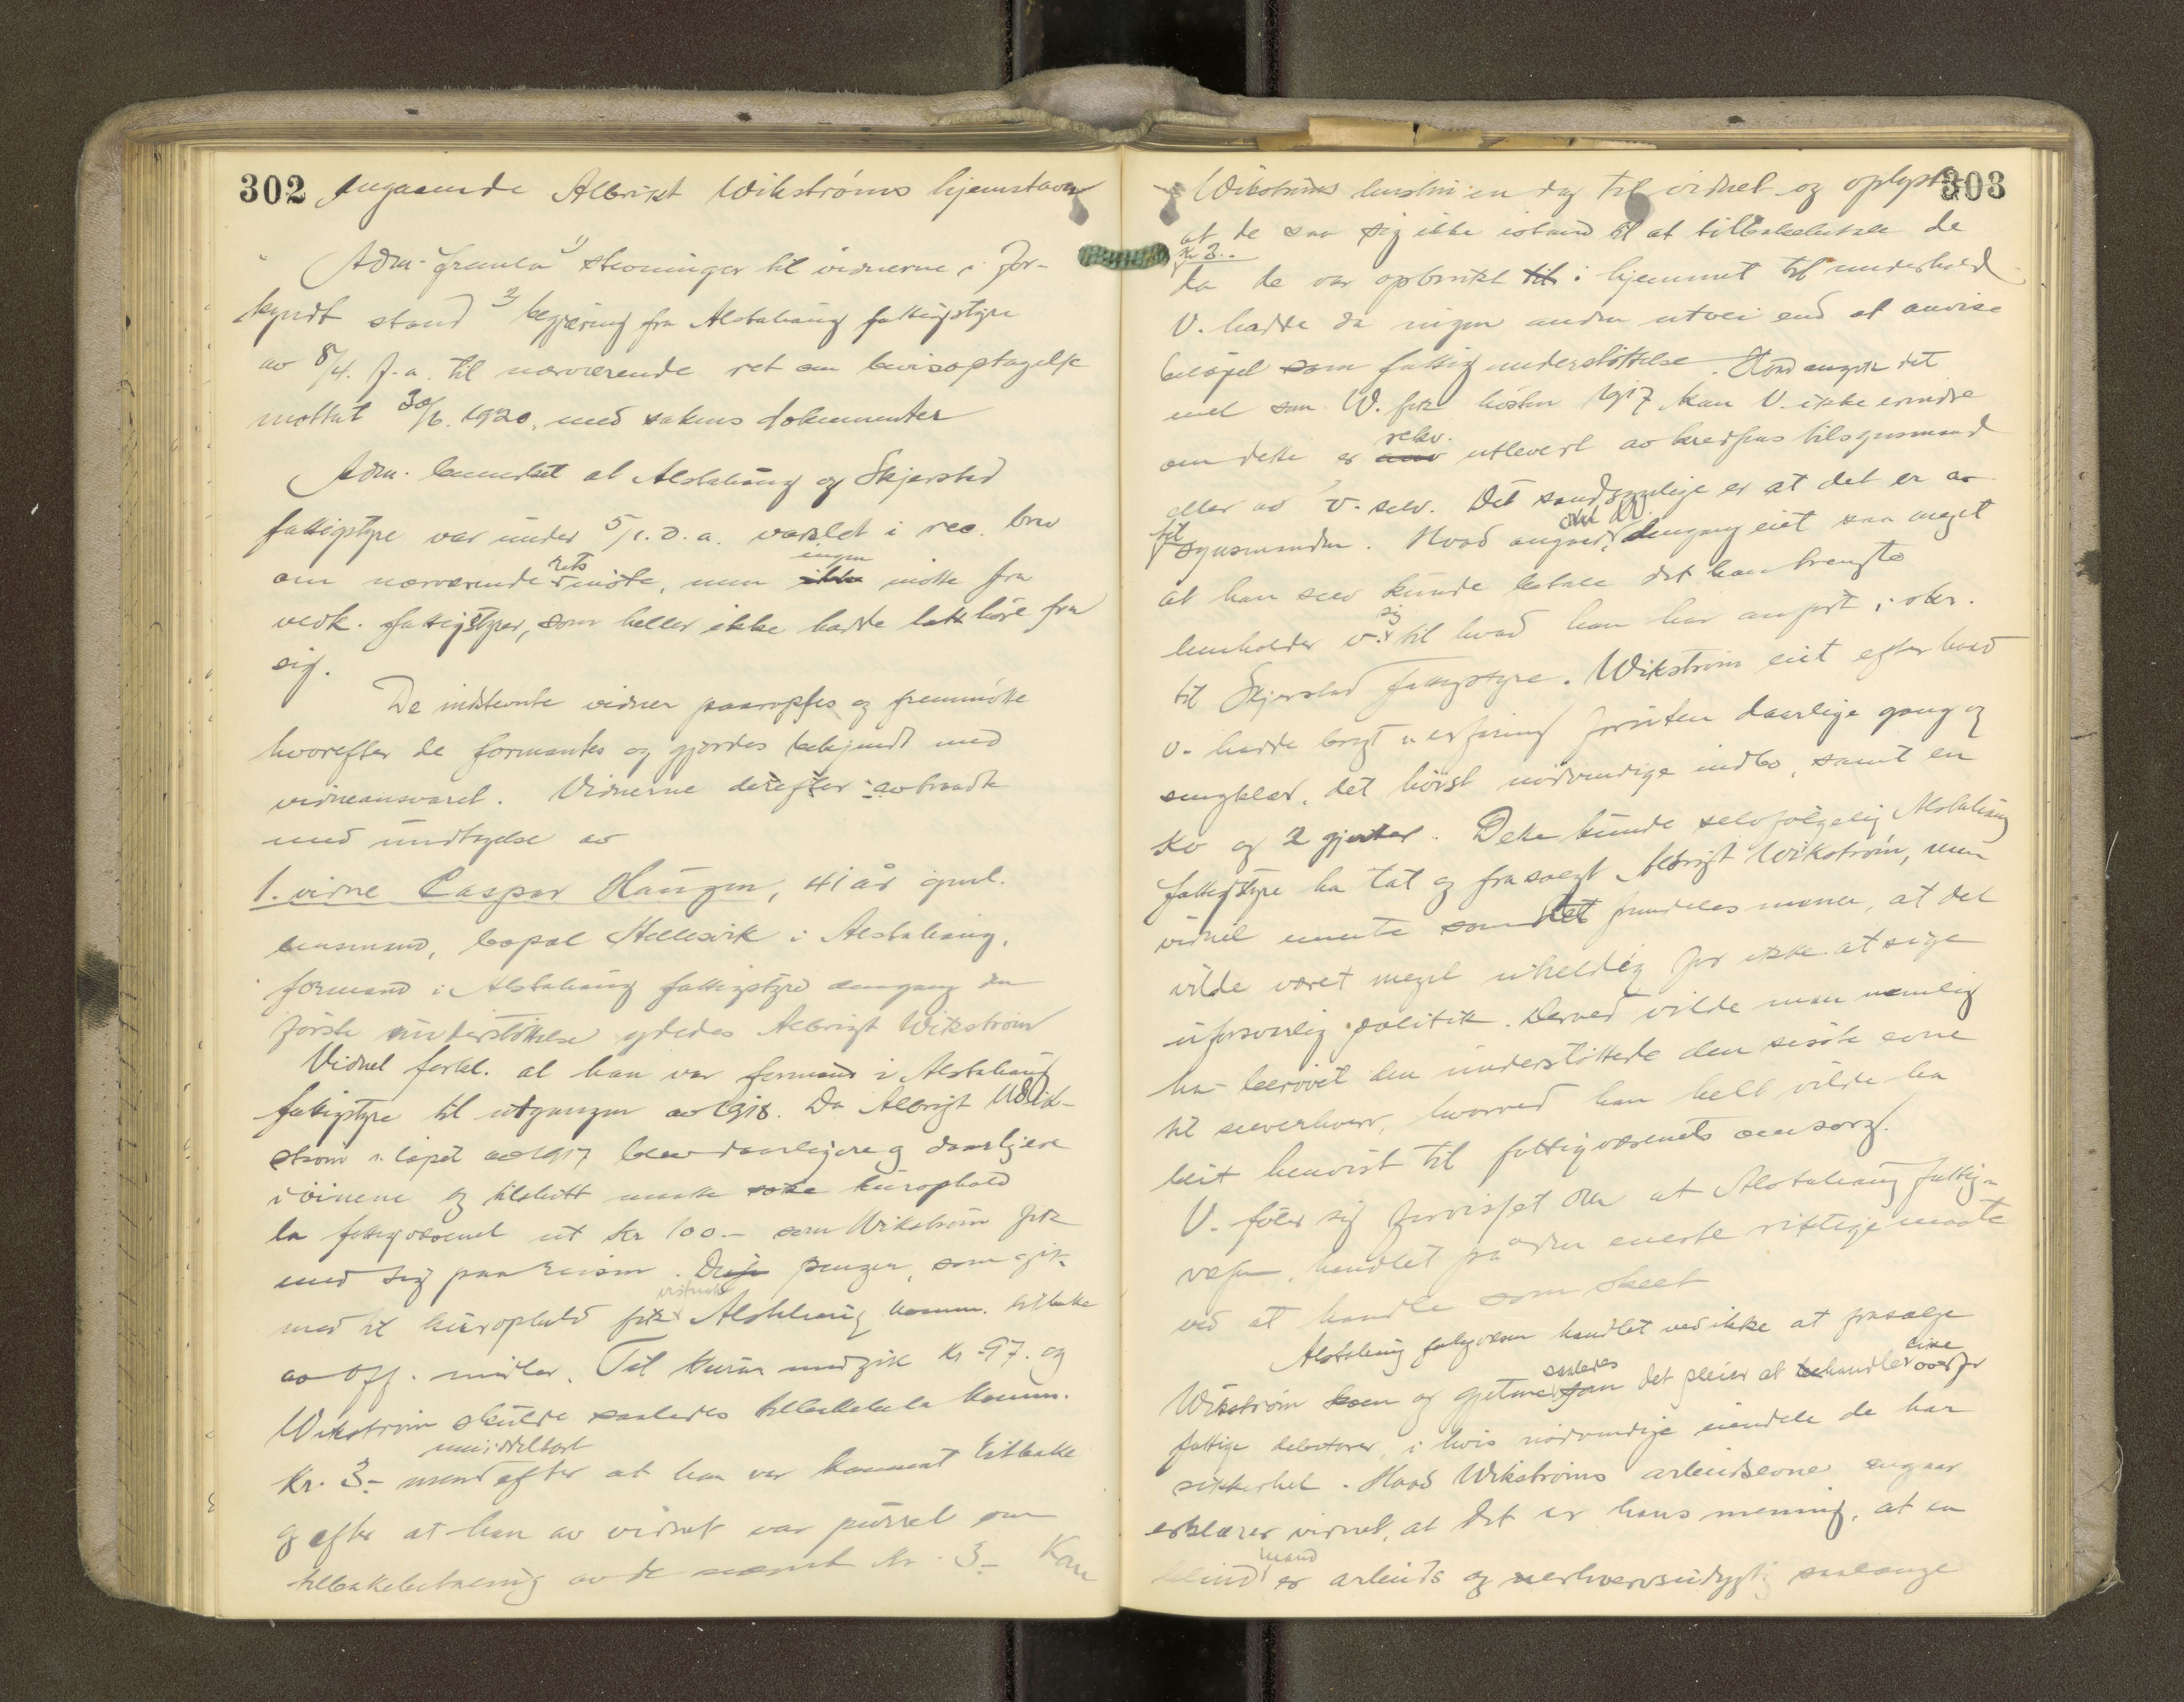 302
angaaende Albrikt Wikstrøms hjemstavn
Adm. fremla 1) stevninger til vidnerne i for-
kyndt stand 2) begjæring fra Alstahaug fattigstyre
av 8/4. f.a. til nærværende ret om bevisoptagelse
mottat 30/6. 1920, med sakens dokumenter
Adm. bemerket at Alstahaug og Skjerstad
fattigstyre var under 5/1. d.a. varslet i rec. brev
om nærværende rets møte, men ikke ingen møtte fra
vedk. fattigstyrer, som heller ikke hadde latt høre fra
sig.
De indstevnte vidner paaroptes og fremmøtte
hvorefter de formantes og gjordes bekjendt med
vidneansvaret. Vidnerne derefter avtraadte
med undtagelse av
1. vidne Caspar Haugen, 41 år gml.
lensmand, bopæl Hellesvik i Alstahaug,
formand i Alstahaug fattigstyre dengang den
første understøttelse ydedes Albrigt Wikstrøm
Vidnet forkl. at han var formand i Alstahaug
fattigstyre til utgangen av 1918. Da Albrigt Wik-
strøm i løpet av 1917 blev daarligere og daarligere
i øinene og tilslutt maatte søke kurophold
la fattigvæsenet ut kr 100.- som Wikstrøm fik
med sig paa reisen. Disse penger, som gik
med til kurophold fik Alstahaug komm. tilbake
av off. midler. Til kuren medgik kr 97. og
Wikstrøm skulde saaledes tilbakebetale komm.
Kr. 3.- umiddelbart efter at han var kommet tilbake
og efter at han av vidnet var purret om
tilbakebetaling av de nævnte kr. 3.- Kom
303
Wikstrøms hustru en dag til vidnet og oplyste
at de saa sig ikke istand til at tilbakebetale de
kr 3..
da de var opbrukt til i hjemmet til underhold
V. hadde da ingen anden utvei end at anvise
beløpet som fattigunderstøttelse. Hvad angår det
mel som W. fik høsten 1917 kan V. ikke erindre
om dette er rekv. utlevert av kredsens tilsynsmand
eller av v. selv. Det sandsynlige er at det er av
tilsynsmanden. Hvad angaar, om W. dengang eiet saa meget
at han selv kunde betale det han trengte
henholder v. sig til hvad han har anført i skr.
til Skjerstad fattigstyre. Wikstrøm eiet efter hvad
v. hadde bragt i erfaring foruten daarlige gang og
sengklær, det høist nødvendige indbo, samt en
ko og 2 gjeiter. Dette kunde selvfølgelig Alstahaug
fattigstyre ha tat og frasolgt Albrigt Wikstrøm, men
vidnet mente som det fremdeles mener, at det
vilde været meget uheldig for ikke at sige
uforsvarlig politik. Derved vilde man nemlig
ha berøvet den understøttede den sidste evne
til selverhverv, hvorved han helt vilde ha
blit henvist til fattigvæsenets omsorg.
V. føler sig forvisset om at Alstahaug fattig-
væsen, handlet på den eneste riktige maate
ved at handle som skeet
Alstahaug fattigvæsen handlet ved ikke at frasælge
Wikstrøm koen og gjetene saaledes som det pleier at behandle sine overfor
fattige debitorer i hvis nødvendige eiendele de har
sikkerhet. Hvad Wikstrøms arbeidsevne angaar
erklærer vidnet, at det er hans mening, at en
blind mand er arbeids og erhvervsudygtig saalænge